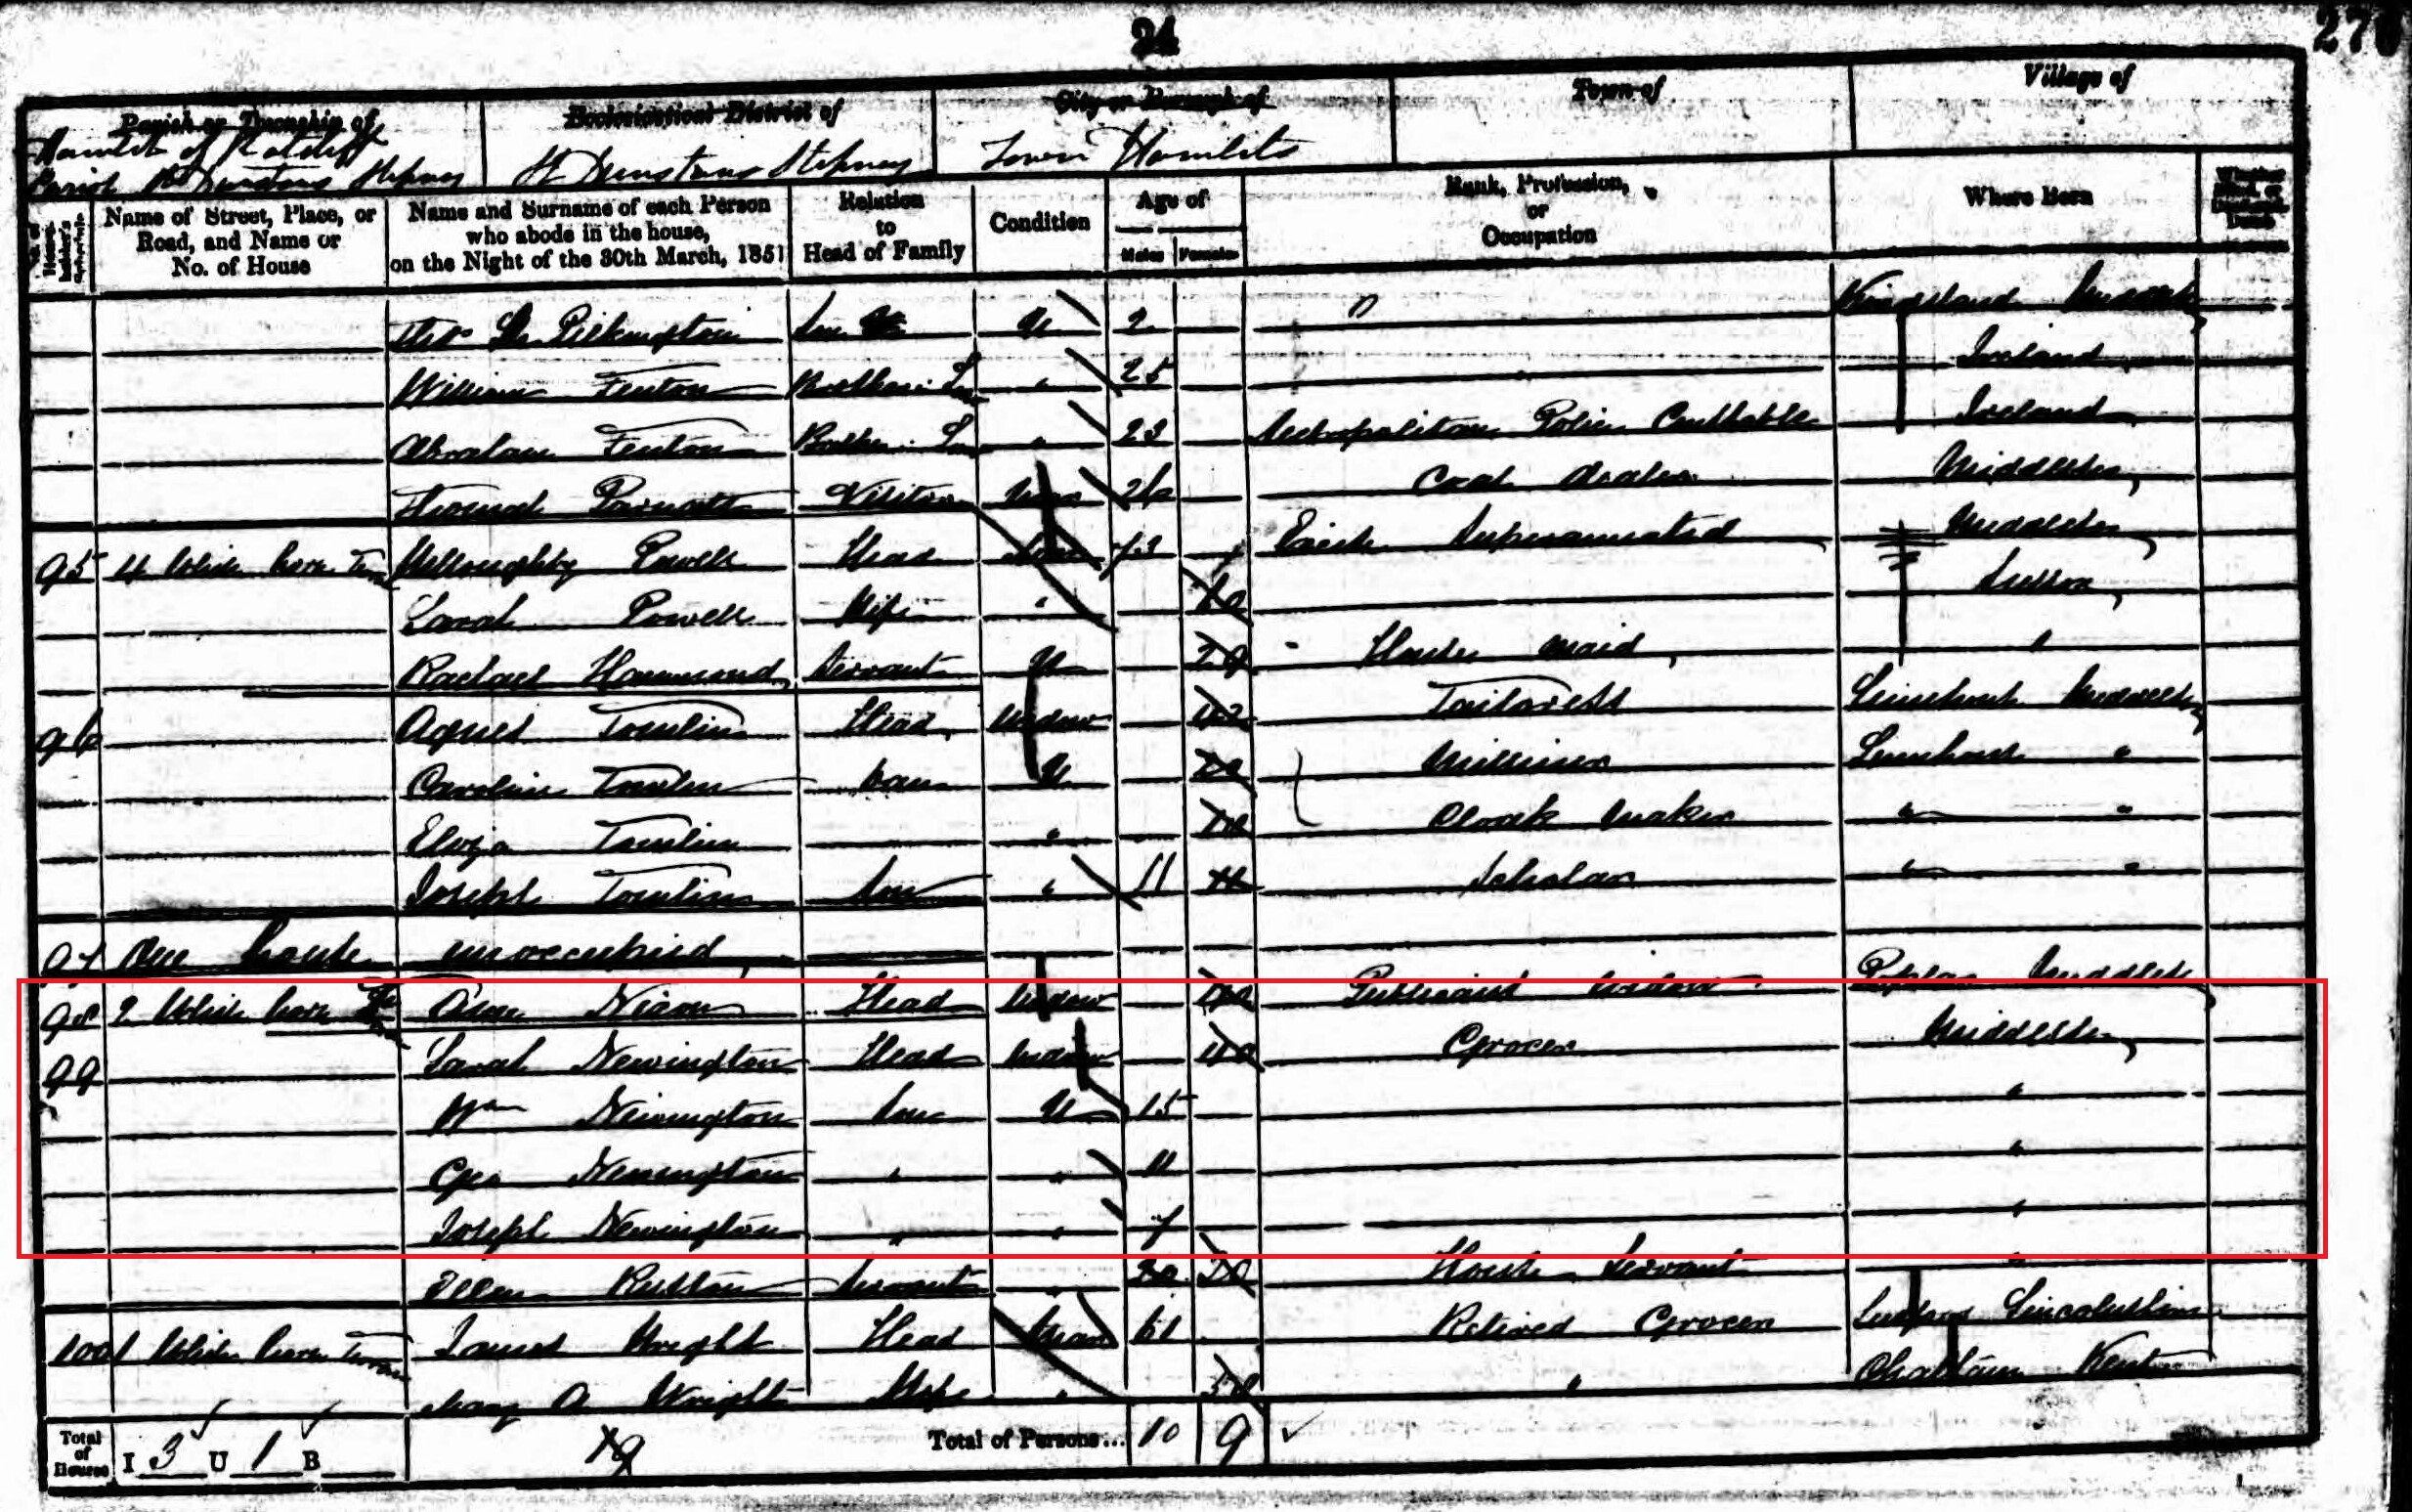 24
27
Parish or Township of
Ecclesiastical District of
City or Borough of
Town of
Village of
Hamlet of Ratcliff
Parish St Dunstans Stepney
St Dunstans Stepney
Tower Hamlets
Name of Street, Place, or Road, and Name or No. of House
Name and Surname of each Person who abode in the house, on the Night of the 30th March, 1851
Relation to Head of Family
Condition
Age of
Males Females
Rank, Profession, or Occupation
Where Born
Whether Blind, or Deaf-and-Dumb
Thos Pilkington Son U 2 Kingsland Middlesex
William Fenton Brother in Law " 25 Ireland
Abraham Fenton Brother in Law " 23 Metropolitan Police Constable Ireland
Thomas Visitor 26 Coal Dealer Middlesex
95 4 White horse Terrace Willoughby Powell Head Superannuated Middlesex
Sarah Powell Wife " Sussex
Rachael Hammond Servant U 29 House Maid "
96 Agnes Tomlin Head Widow 42 Tailoress Limehouse Middlesex
Caroline Tomlin Dau U 20 Milliner Limehouse "
Eliza Tomlin " Cloak Maker " "
Joseph Tomlin Son " 11 Scholar " "
97 One house unoccupied
98 2 White horse Nixon Head Widow Publicans Widow Poplar Middlesex
99 Sarah Newington Head Widow 40 Grocer Middlesex
Wm Newington Son U 15 "
Geo Newington " " 11 "
Joseph Newington " " 7 "
Ellen Servant " 20 20 House Servant "
100 1 White horse Terrace James Wright Head Mar 61 Retired Grocer Lincolnshire
Mary A Wright Wife " " Chatham Kent
Total of Houses I 3 U 1 B
19
Total of Persons... 10 9